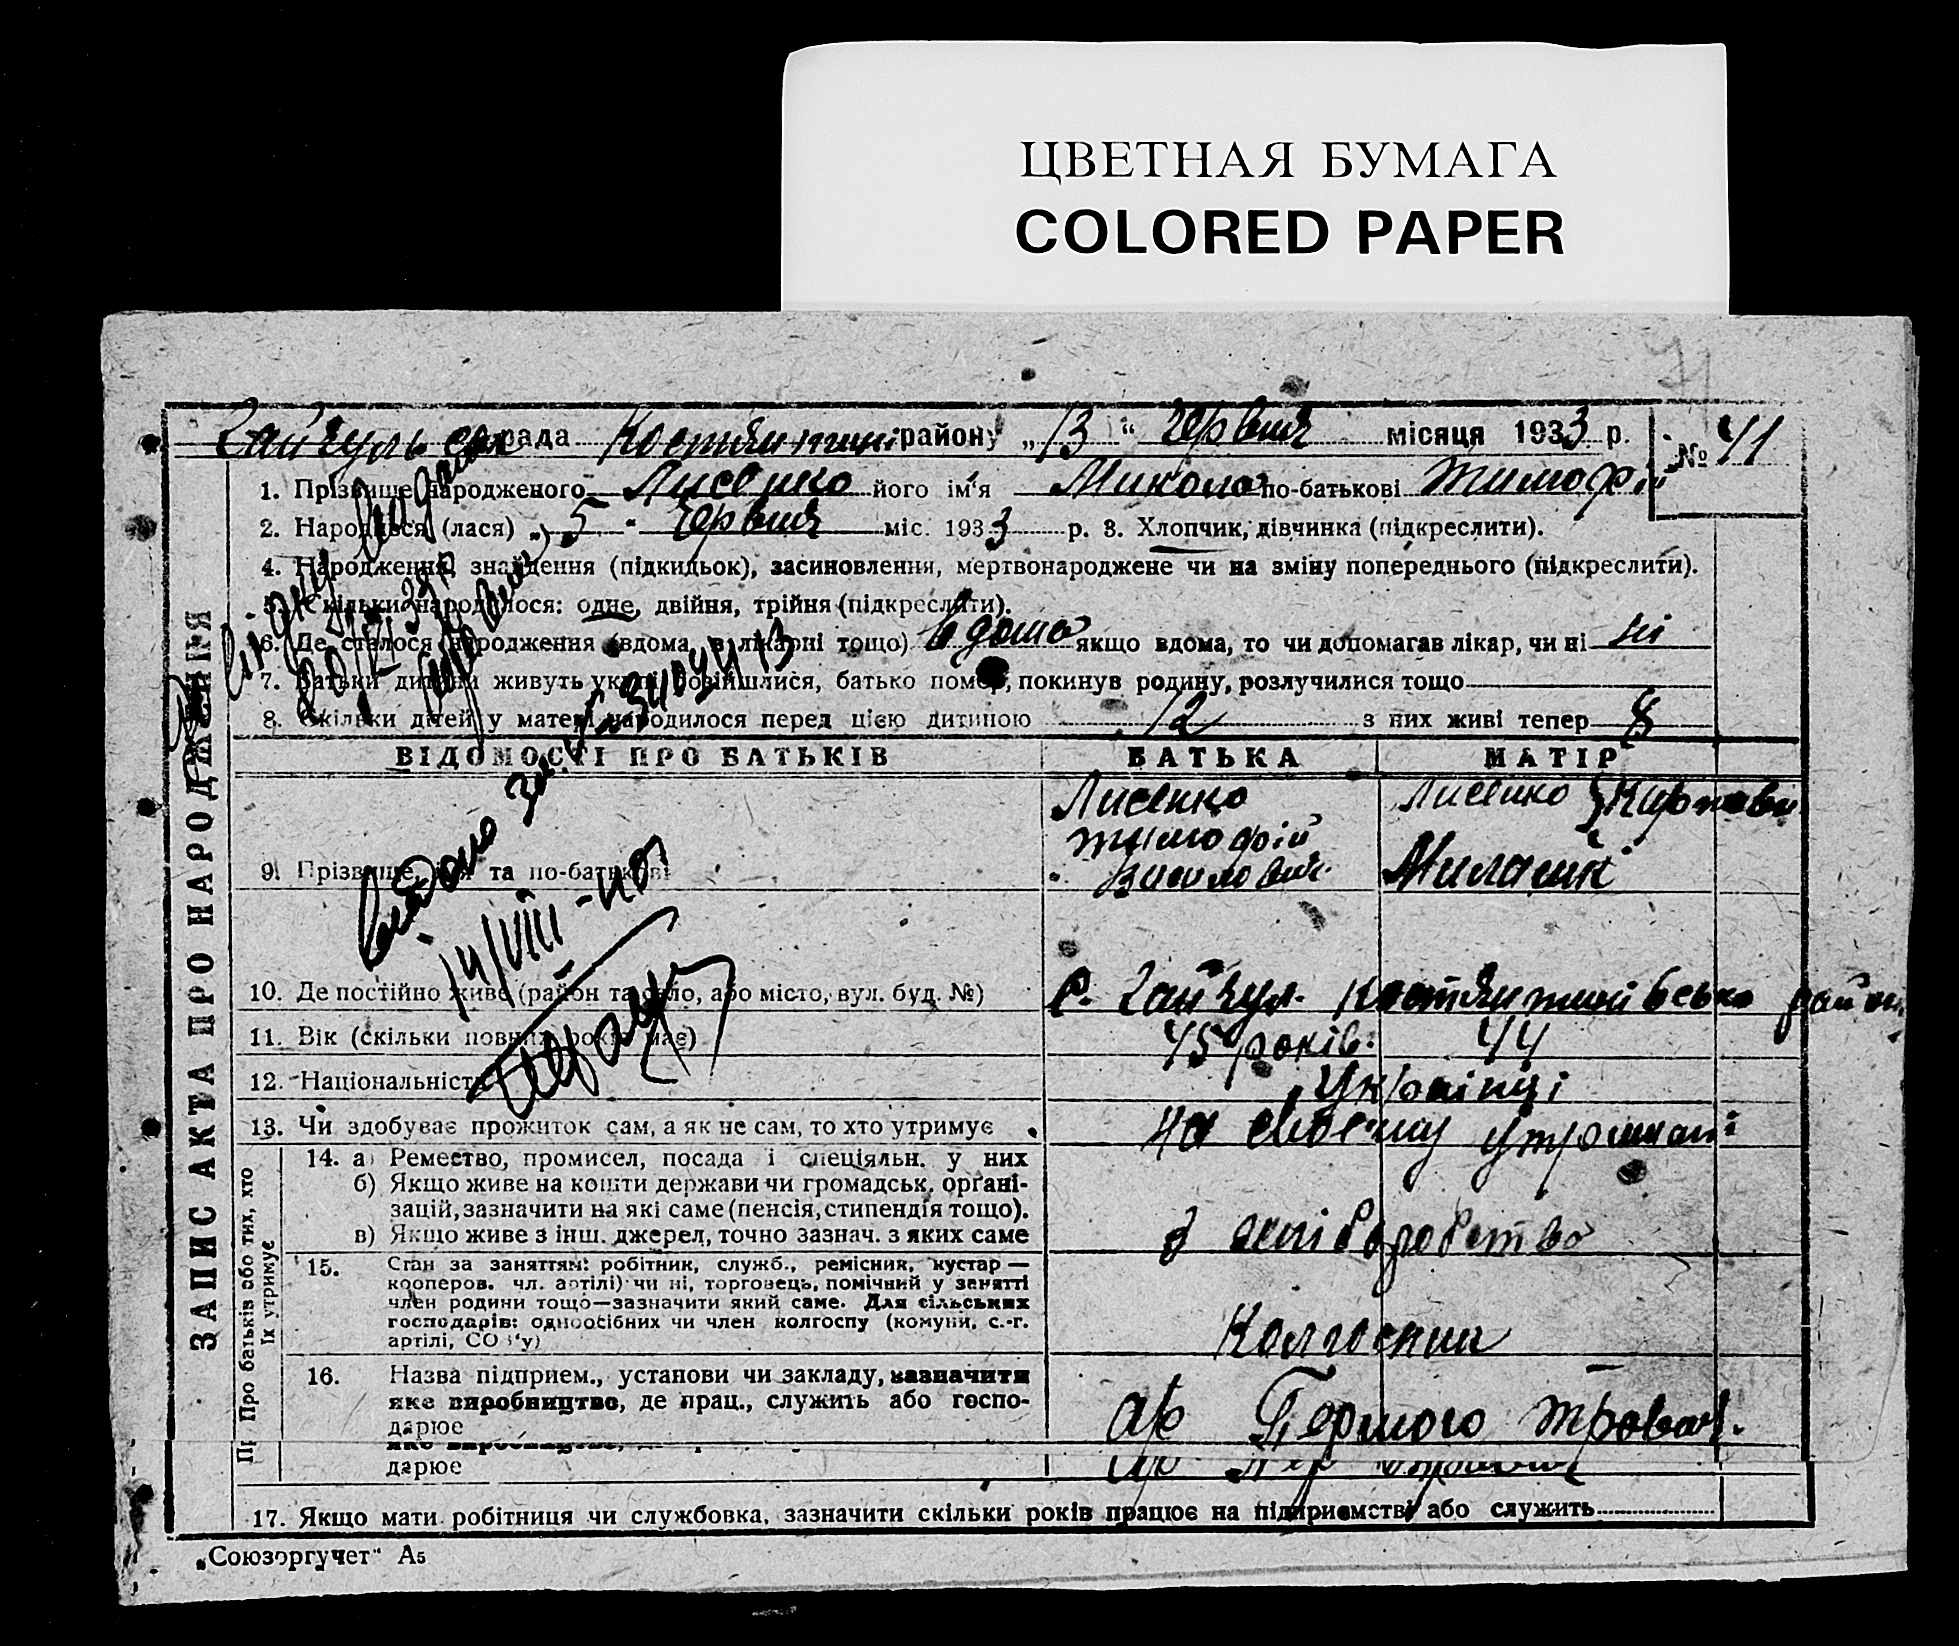 ЦВЕТНАЯ БУМАГА
COLORED PAPER
71
Гайчульська рада району „13“ червня місяця 1933 р. № 41
1. Прізвище народженого Лисенко його ім'я Микола по-батькові Тимоф.
2. Народився (лася) „5“ червня міс. 1933 р. 3. Хлопчик, дівчинка (підкреслити).
4. Народження, знайдення (підкидьок), засиновлення, мертвонароджене чи на зміну попереднього (підкреслити).
5. Скільки народилося: одне, двійня, трійня (підкреслити).
6. Де сталося народження (вдома, в лікарні тощо) вдома якщо вдома, то чи допомагав лікар, чи ні ні
7. Батьки дитини живуть укупі, розійшлися, батько помер, покинув родину, розлучилися тощо
8. Скільки дітей у матері народилося перед цією дитиною 12 з них живі тепер 8
ЗАПИС АКТА ПРО НАРОДЖЕННЯ
ВІДОМОСТІ ПРО БАТЬКІВ БАТЬКА МАТІР
9. Прізвище, ім'я та по-батькові
Лисенко
Тимофій
Лисенко
10. Де постійно живе (район та село, або місто, вул. буд. №) с. Гайчул. район
11. Вік (скільки повних років має) 45 років. 44
12. Національність Українці
13. Чи здобуває прожиток сам, а як не сам, то хто утримує на своєму утриманні
Про батьків або тих, хто
їх утримує
14. а) Ремество, промисел, посада і спеціяльн. у них
б) Якщо живе на кошти держави чи громадськ. орґані-
зацій, зазначити на які саме (пенсія, стипендія тощо).
в) Якщо живе з інш. джерел, точно зазнач. з яких саме
15. Стан за заняттям: робітник, служб., ремісник, кустар —
кооперов. чл. артілі) чи ні, торговець, помічний у занятті
член родини тощо—зазначити який саме. Для сільських
господарів: одноосібних чи член колгоспу (комуни, с.-г.
артілі, СОЗ'у)
Колгоспник
16. Назва підприєм., установи чи закладу, зазначити
яке виробництво, де прац., служить або госпо-
дарює
а/с Першого Травня.
дарює
17. Якщо мати робітниця чи службовка, зазначити скільки років працює на підприємстві або служить
видано
14/VIII-40
„Союзоргучет“ А5